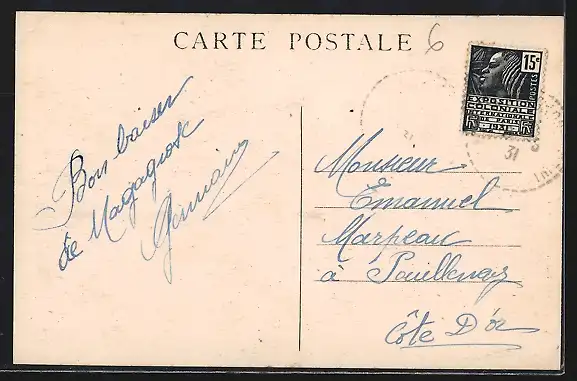 CARTE POSTALE
6
15c
POSTES
EXPOSITION
COLONIALE
INTERNATIONALE
DE PARIS
1931
31
Bon baiser
de Magagnosc
Germaine
Monsieur
Emanuel
Marpeau
à Pouillenay
Côte D'or